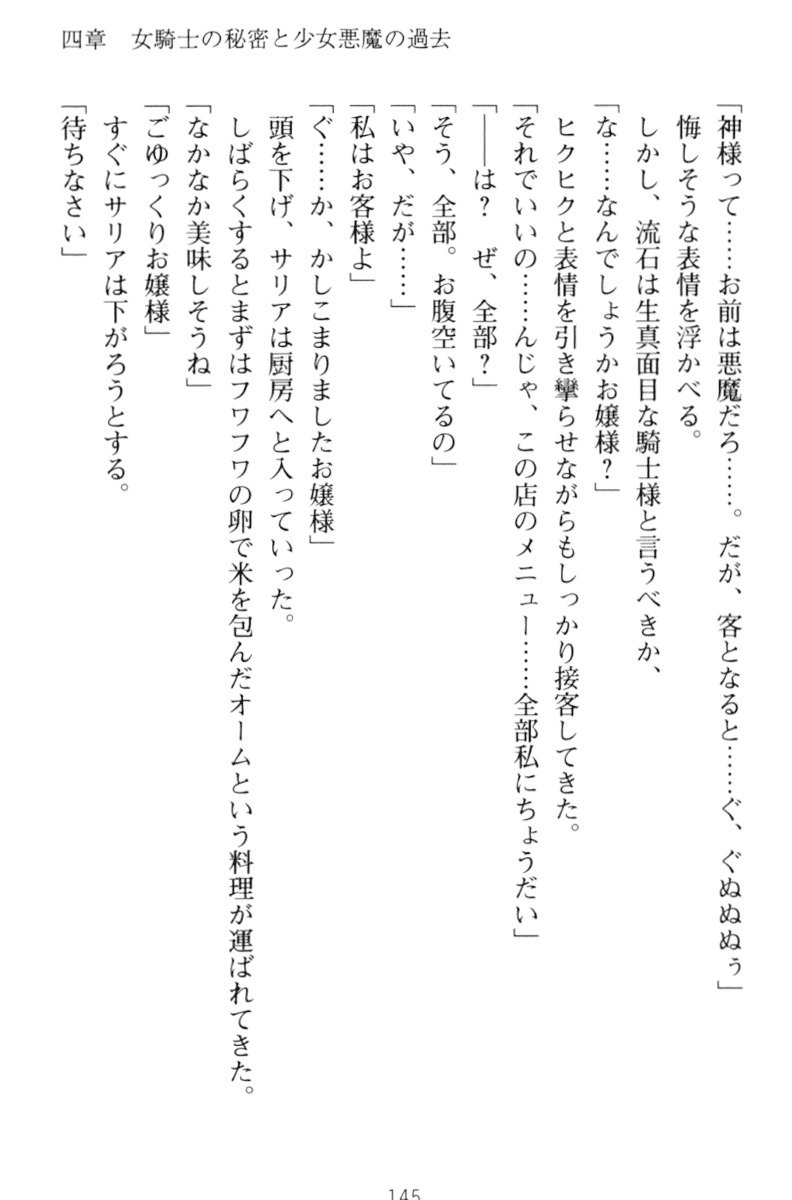 四章　女騎士の秘密と少女悪魔の過去
「神様って……お前は悪魔だろ……。だが、客となると……ぐ、ぐぬぬぬぅ」
悔しそうな表情を浮かべる。
しかし、流石は生真面目な騎士様と言うべきか、
「な……なんでしょうかお嬢様？」
ヒクヒクと表情を引き攣らせながらもしっかり接客してきた。
「それでいいの……んじゃ、この店のメニュー……全部私にちょうだい」
「――は？　ぜ、全部？」
「そう、全部。お腹空いてるの」
「いや、だが……」
「私はお客様よ」
「ぐ……か、かしこまりましたお嬢様」
頭を下げ、サリアは厨房へと入っていった。
しばらくするとまずはフワフワの卵で米を包んだオームという料理が運ばれてきた。
「なかなか美味しそうね」
「ごゆっくりお嬢様」
すぐにサリアは下がろうとする。
「待ちなさい」
145